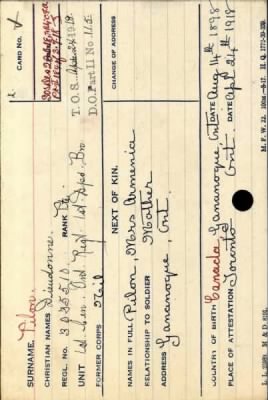 CARD NO.
SURNAME. Pilon.
CHRISTIAN NAMES Dieudonne.
REGL. NO. 3055510. RANK Pte.
UNIT 1st Cen. Ont. Regt. 1st Depot Bn.
FORMER CORPS Nil
T. O. S. April 24 1918
D. O. Part II No 115
NEXT OF KIN.
CHANGE OF ADDRESS
NAMES IN FULL Pilon, Mrs Armenia
RELATIONSHIP TO SOLDIER Mother
ADDRESS Gananoque, Ont.
COUNTRY OF BIRTH Canada Gananoque, Ont DATE Aug 14th 1898
PLACE OF ATTESTATION Toronto, Ont. DATE Apl 24th 1918
M. F. W. 22.